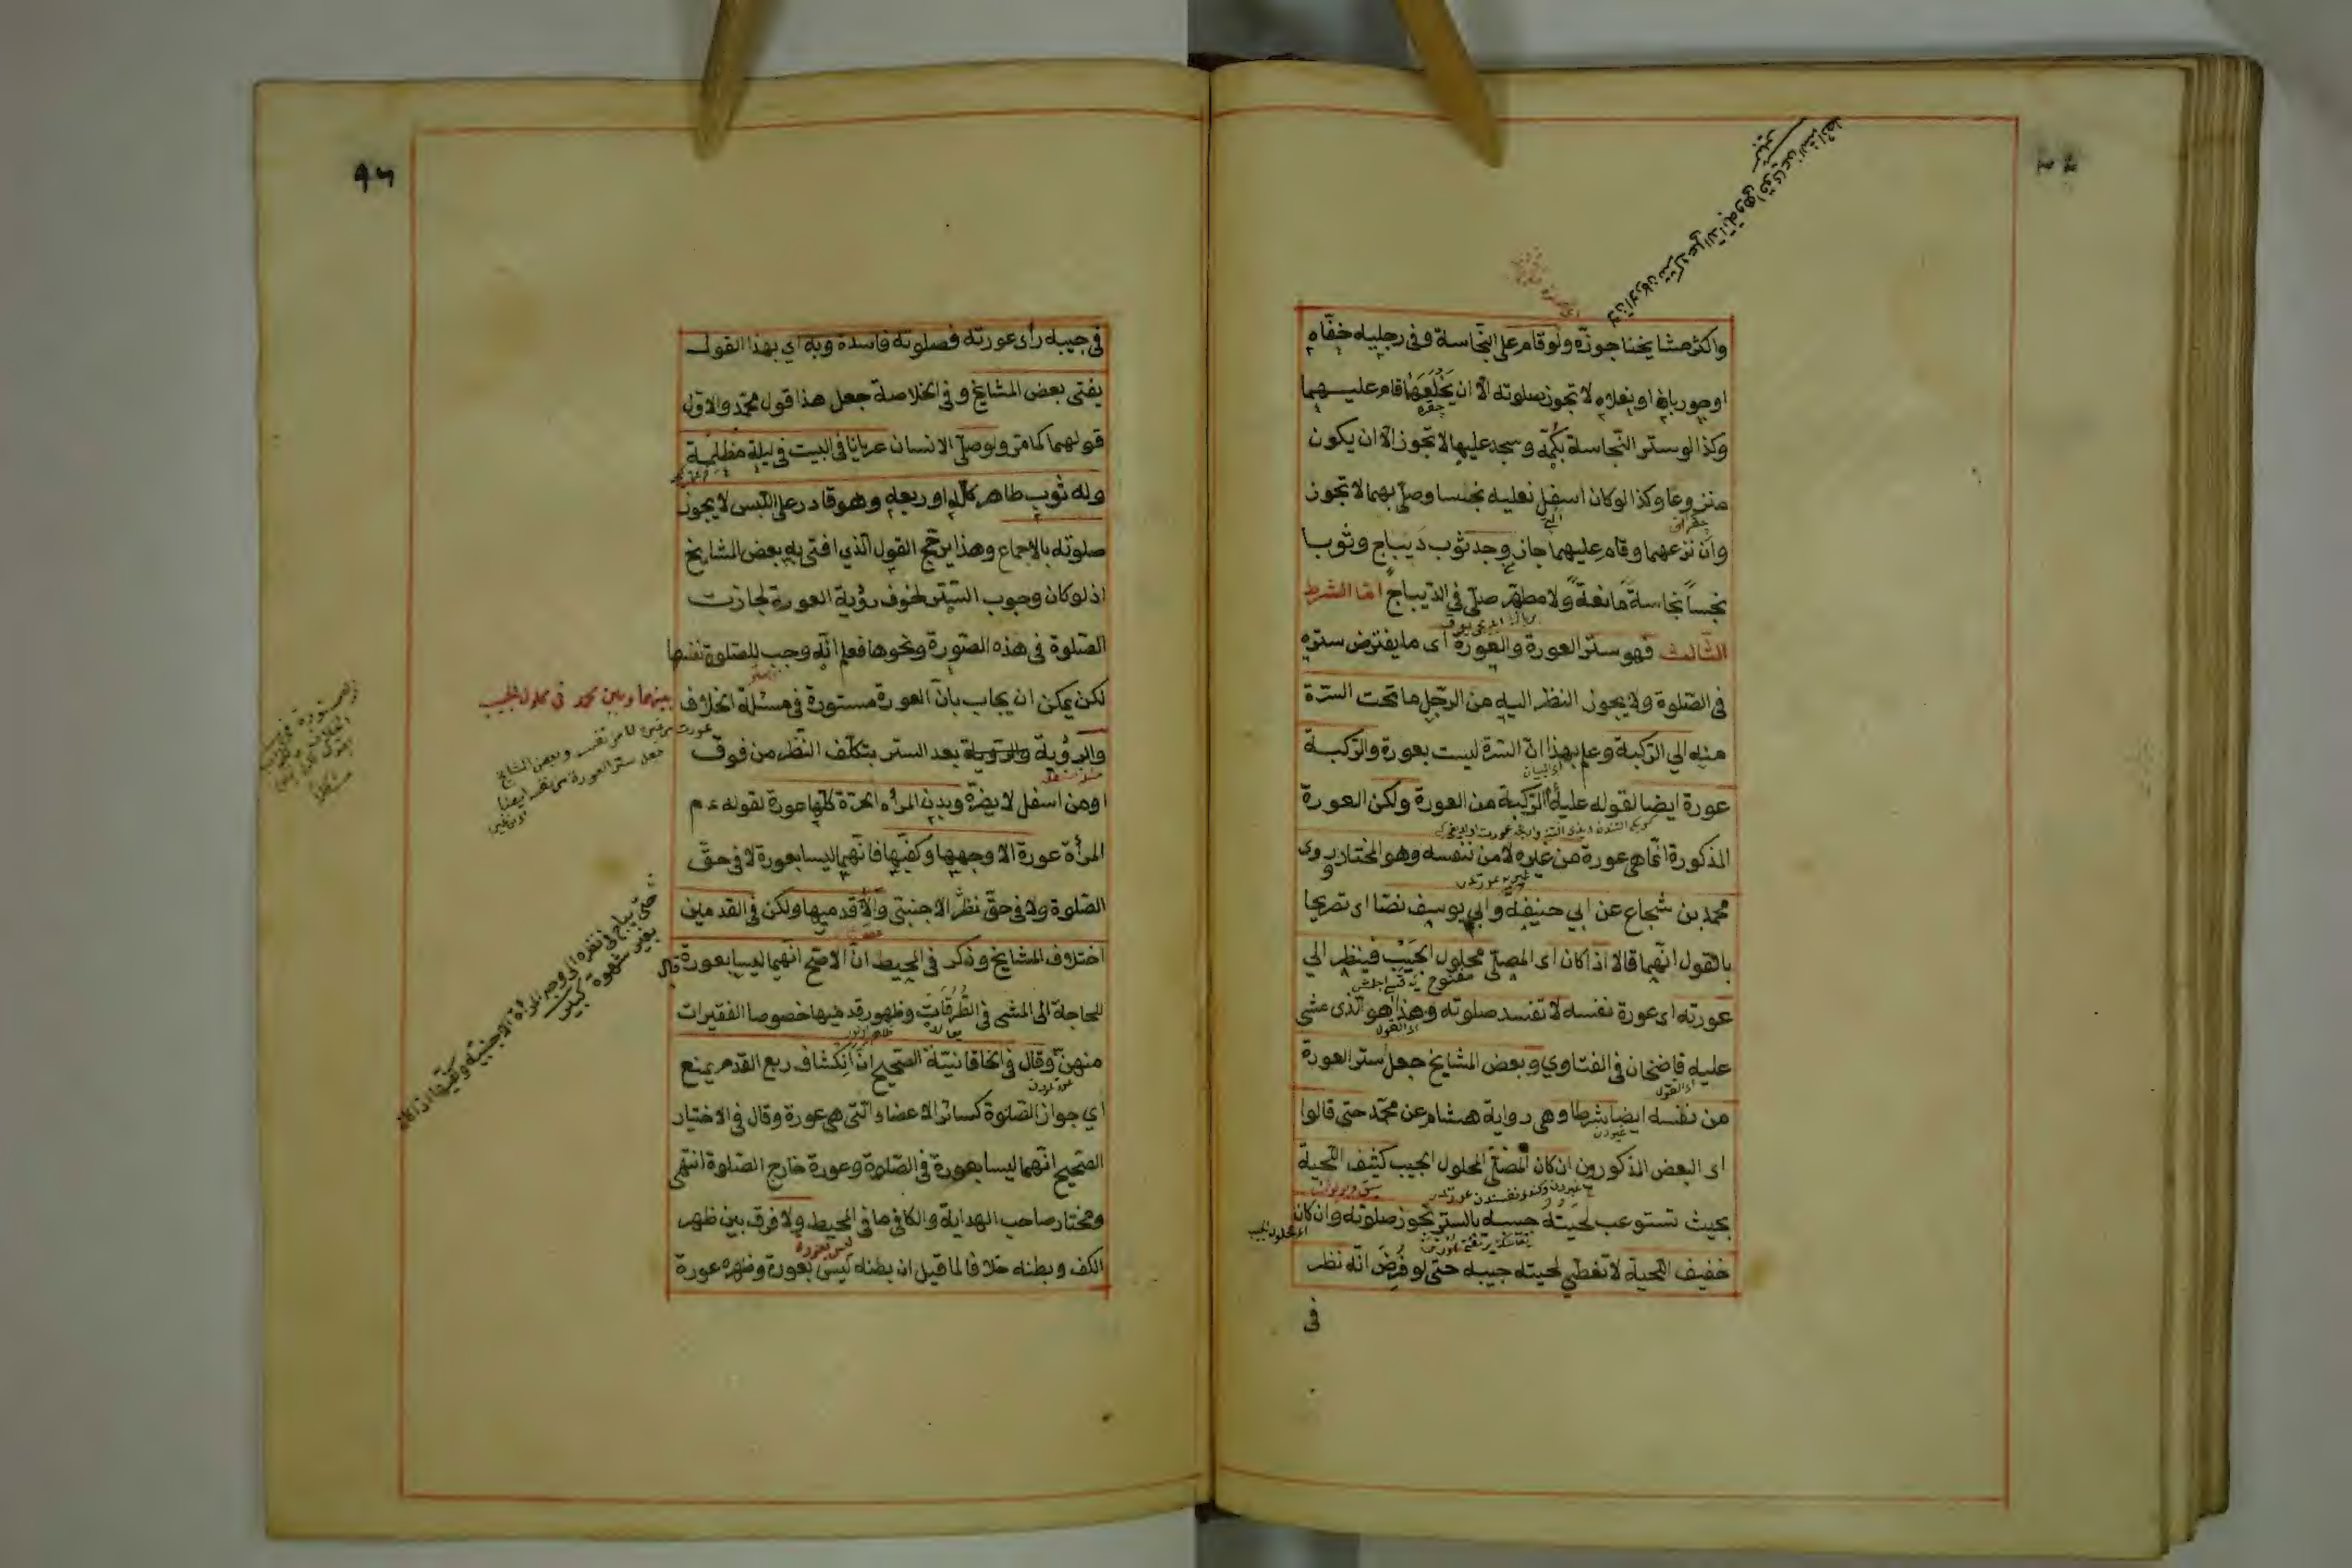 واكثر مشايخنا جوزه ولو قام على النجاسة وفى رجليه خفاه
او جورباه او نعلاه لا تجوز صلوته الا ان يخلعهما قام عليهما
وكذا لو ستر النجاسة بكمه وسجد عليها لا تجوز الا ان يكون
منزوعا وكذا لو كان اسفل نعليه نجسا وصلى بهما لا تجوز
وان نزعهما وقام عليهما جاز وجد ثوب ديباج وثوبا
نجساً نجاسة مانعة ولا مطهر صلى فى الديباج اما الشرط
الثالث فهو ستر العورة والعورة اى ما يفترض ستره
فى الصلوة ولا يجوز النظر اليه من الرجل ما تحت السرة
منه الي الركبة وعلم بهذا ان السرة ليست بعورة والركبة
عورة ايضا لقوله عليه الركبة من العورة ولكن العورة
المذكورة انما هى عورة من غيره لا من نفسه وهو المختار روى
محمد بن شجاع عن ابي حنيفة وابي يوسف نصا اى تصريحا
بالقول انهما قالا اذا كان اى المصلى محلول الجيب فينظر الي
عورته اى عورة نفسه لا تفسد صلوته وهذا هو الذى مشى
عليه قاضيخان فى الفتاوي وبعض المشايخ جعل ستر العورة
من نفسه ايضا شرطا وهى رواية هشام عن محمد حتى قالوا
اى البعض المذكورون ان كان المصلى المحلول الجيب كثيف اللحية
بحيث تستوعب لحيته جيبه بالستر تجوز صلوته وان كان
اى محلول الجيب
خفيف اللحية لا تغطي لحيته جيبه حتى لو فرض انه نظر
فى
٩٦
فى جيبه رأى عورته فصلوته فاسدة وبه اي بهذا القول
يفتى بعض المشايخ وفى الخلاصة جعل هذا قول محمد والاول
قولهما كما مر ولو صلى الانسان عريانا فى البيت فى ليلة مظلمة
وله ثوب طاهر كله او ربعه وهو قادر على اللبس لا يجوز
صلوته بالاجماع وهذا يرجح القول الذي افتى به بعض المشايخ
اذ لو كان وجوب الستر لخوف رؤية العورة لجازت
الصلوة فى هذه الصورة ونحوها فعلم انه وجب للصلوة نفسها
لكن يمكن ان يجاب بان العورة مستورة فى مسئلة الخلاف
بينهما وبين محمد فى محلول الجيب
والرؤية والرؤية بعد الستر بتكلف النظر من فوق
او من اسفل لا يضره وبدن المرأة الحرة كلها عورة لقوله ع م
المرأة عورة الا وجهها وكفيها فانهما ليسا بعورة لا فى حق
الصلوة ولا فى حق نظر الاجنبى والا قدميها ولكن فى القدمين
اختلاف المشايخ وذكر فى المحيط ان الاصح انهما ليسا بعورة قال
للحاجة الى المشى فى الطرقات وظهور قدميها خصوصا الفقيرات
منهن وقال فى الخاقانية الصحيح ان انكشاف ربع القدم يمنع
اي جواز الصلوة كسائر الاعضاء التى هى عورة وقال فى الاختيار
الصحيح انهما ليسا بعورة فى الصلوة وعورة خارج الصلوة انتهى
ومختار صاحب الهداية والكافى ما فى المحيط ولا فرق بين ظهر
الكف وبطنه خلافا لما قيل ان بطنه ليس بعورة وظهره عورة
وبعض المشايخ
جعل ستر العورة من نفسه ايضا
حتى يباح نظره الى وجه المرأة الاجنبية وكفيها اذا كان
بغير شهوة كبير